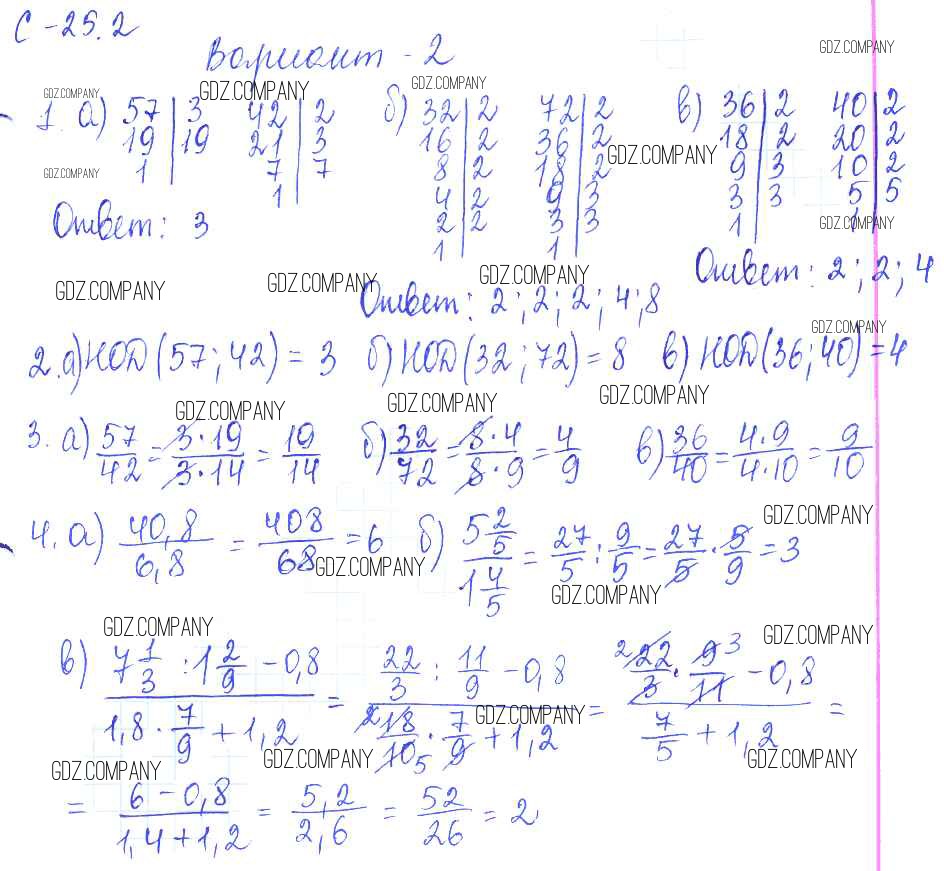 С-25.2
Вариант - 2
GDZ.COMPANY
GDZ.COMPANY GDZ.COMPANY GDZ.COMPANY
1. а) 57 | 3 42 | 2 б) 32 | 2 72 | 2 в) 36 | 2 40 | 2
19 | 19 21 | 3 16 | 2 36 | 2 18 | 2 20 | 2
GDZ.COMPANY
1 7 | 7 8 | 2 18 | 2 9 | 3 10 | 2
GDZ.COMPANY
1 4 | 2 9 | 3 3 | 3 5 | 5
Ответ: 3 2 | 2 3 | 3 1 1
GDZ.COMPANY
1 1
Ответ: 2; 2; 4
GDZ.COMPANY GDZ.COMPANY GDZ.COMPANY
Ответ: 2; 2; 2; 4; 8
GDZ.COMPANY
2. а) НОД (57; 42) = 3 б) НОД (32; 72) = 8 в) НОД (36; 40) = 4
GDZ.COMPANY GDZ.COMPANY GDZ.COMPANY
3. а) 57/42 = 3·19/3·14 = 19/14 б) 32/72 = 8·4/8·9 = 4/9 в) 36/40 = 4·9/4·10 = 9/10
GDZ.COMPANY
4. а) 40,8/6,8 = 408/68 = 6 б) 5 2/5 / 1 4/5 = 27/5 : 9/5 = 27/5 · 5/9 = 3
GDZ.COMPANY GDZ.COMPANY
GDZ.COMPANY GDZ.COMPANY
в) (7 1/3 : 1 2/9 - 0,8) / (1,8 · 7/9 + 1,2) = (22/3 : 11/9 - 0,8) / (2 18/10 5 · 7/9 + 1,2) = (2 22/3 · 9 3/11 - 0,8) / (7/5 + 1,2) =
GDZ.COMPANY
GDZ.COMPANY GDZ.COMPANY GDZ.COMPANY
= (6 - 0,8) / (1,4 + 1,2) = 5,2/2,6 = 52/26 = 2